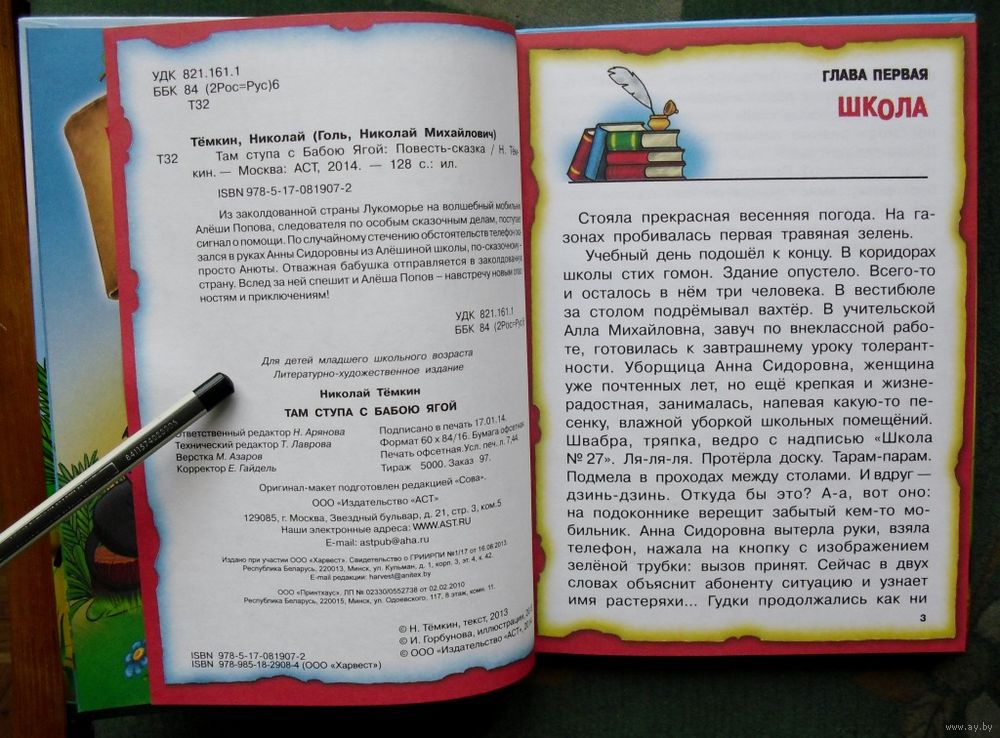 УДК 821.161.1
ББК 84 (2Рос=Рус)6
Т32
Тёмкин, Николай (Голь, Николай Михайлович)
Т32 Там ступа с Бабою Ягой: Повесть-сказка / Н. Тём-
кин. — Москва: АСТ, 2014. — 128 с.: ил.
ISBN 978-5-17-081907-2
Из заколдованной страны Лукоморье на волшебный мобильник
Алёши Попова, следователя по особым сказочным делам, поступает
сигнал о помощи. По случайному стечению обстоятельств телефон
зался в руках Анны Сидоровны из Алёшиной школы, по-сказочному —
просто Анюты. Отважная бабушка отправляется в заколдованную
страну. Вслед за ней спешит и Алёша Попов – навстречу новым опас-
ностям и приключениям!
УДК 821.161.1
ББК 84 (2Рос=Рус)6
Для детей младшего школьного возраста
Литературно-художественное издание
Николай Тёмкин
ТАМ СТУПА С БАБОЮ ЯГОЙ
Ответственный редактор Н. Арянова
Технический редактор Т. Лаврова
Верстка М. Азаров
Корректор Е. Гайдель
Подписано в печать 17.01.14.
Формат 60 х 84/16. Бумага офсетная.
Печать офсетная. Усл. печ. л. 7,44.
Тираж 5000. Заказ 97.
Оригинал-макет подготовлен редакцией «Сова».
ООО «Издательство «АСТ»
129085, г. Москва, Звездный бульвар, д. 21, стр. 3, ком.5
Наши электронные адреса: WWW.AST.RU
E-mail: astpub@aha.ru
Издано при участии ООО «Харвест». Свидетельство о ГРИИРПИ №1/17 от 16.08.2013.
Республика Беларусь, 220013, Минск, ул. Кульман, д. 1, корп. 3, эт. 4, к. 42.
E-mail редакции: harvest@anitex.by
ООО «Принтхаус». ЛП № 02330/0552738 от 02.02.2010
Республика Беларусь, 220015, Минск, ул. Одоевского, 117, 8 этаж, комн. 11.
© Н. Тёмкин, текст, 2013
© И. Горбунова, иллюстрации,
© ООО «Издательство «АСТ»,
ISBN 978-5-17-081907-2
ISBN 978-985-18-2908-4 (ООО «Харвест»)
8411574023506
ГЛАВА ПЕРВАЯ
ШКОЛА
Стояла прекрасная весенняя погода. На га-
зонах пробивалась первая травяная зелень.
Учебный день подошёл к концу. В коридорах
школы стих гомон. Здание опустело. Всего-то
и осталось в нём три человека. В вестибюле
за столом подрёмывал вахтёр. В учительской
Алла Михайловна, завуч по внеклассной рабо-
те, готовилась к завтрашнему уроку толерант-
ности. Уборщица Анна Сидоровна, женщина
уже почтенных лет, но ещё крепкая и жизне-
радостная, занималась, напевая какую-то пе-
сенку, влажной уборкой школьных помещёний.
Швабра, тряпка, ведро с надписью «Школа
№ 27». Ля-ля-ля. Протёрла доску. Тарам-парам.
Подмела в проходах между столами. И вдруг —
дзинь-дзинь. Откуда бы это? А-а, вот оно:
на подоконнике верещит забытый кем-то мо-
бильник. Анна Сидоровна вытерла руки, взяла
телефон, нажала на кнопку с изображением
зелёной трубки: вызов принят. Сейчас в двух
словах объяснит абоненту ситуацию и узнает
имя растеряхи... Гудки продолжались как ни
3
www.ay.by